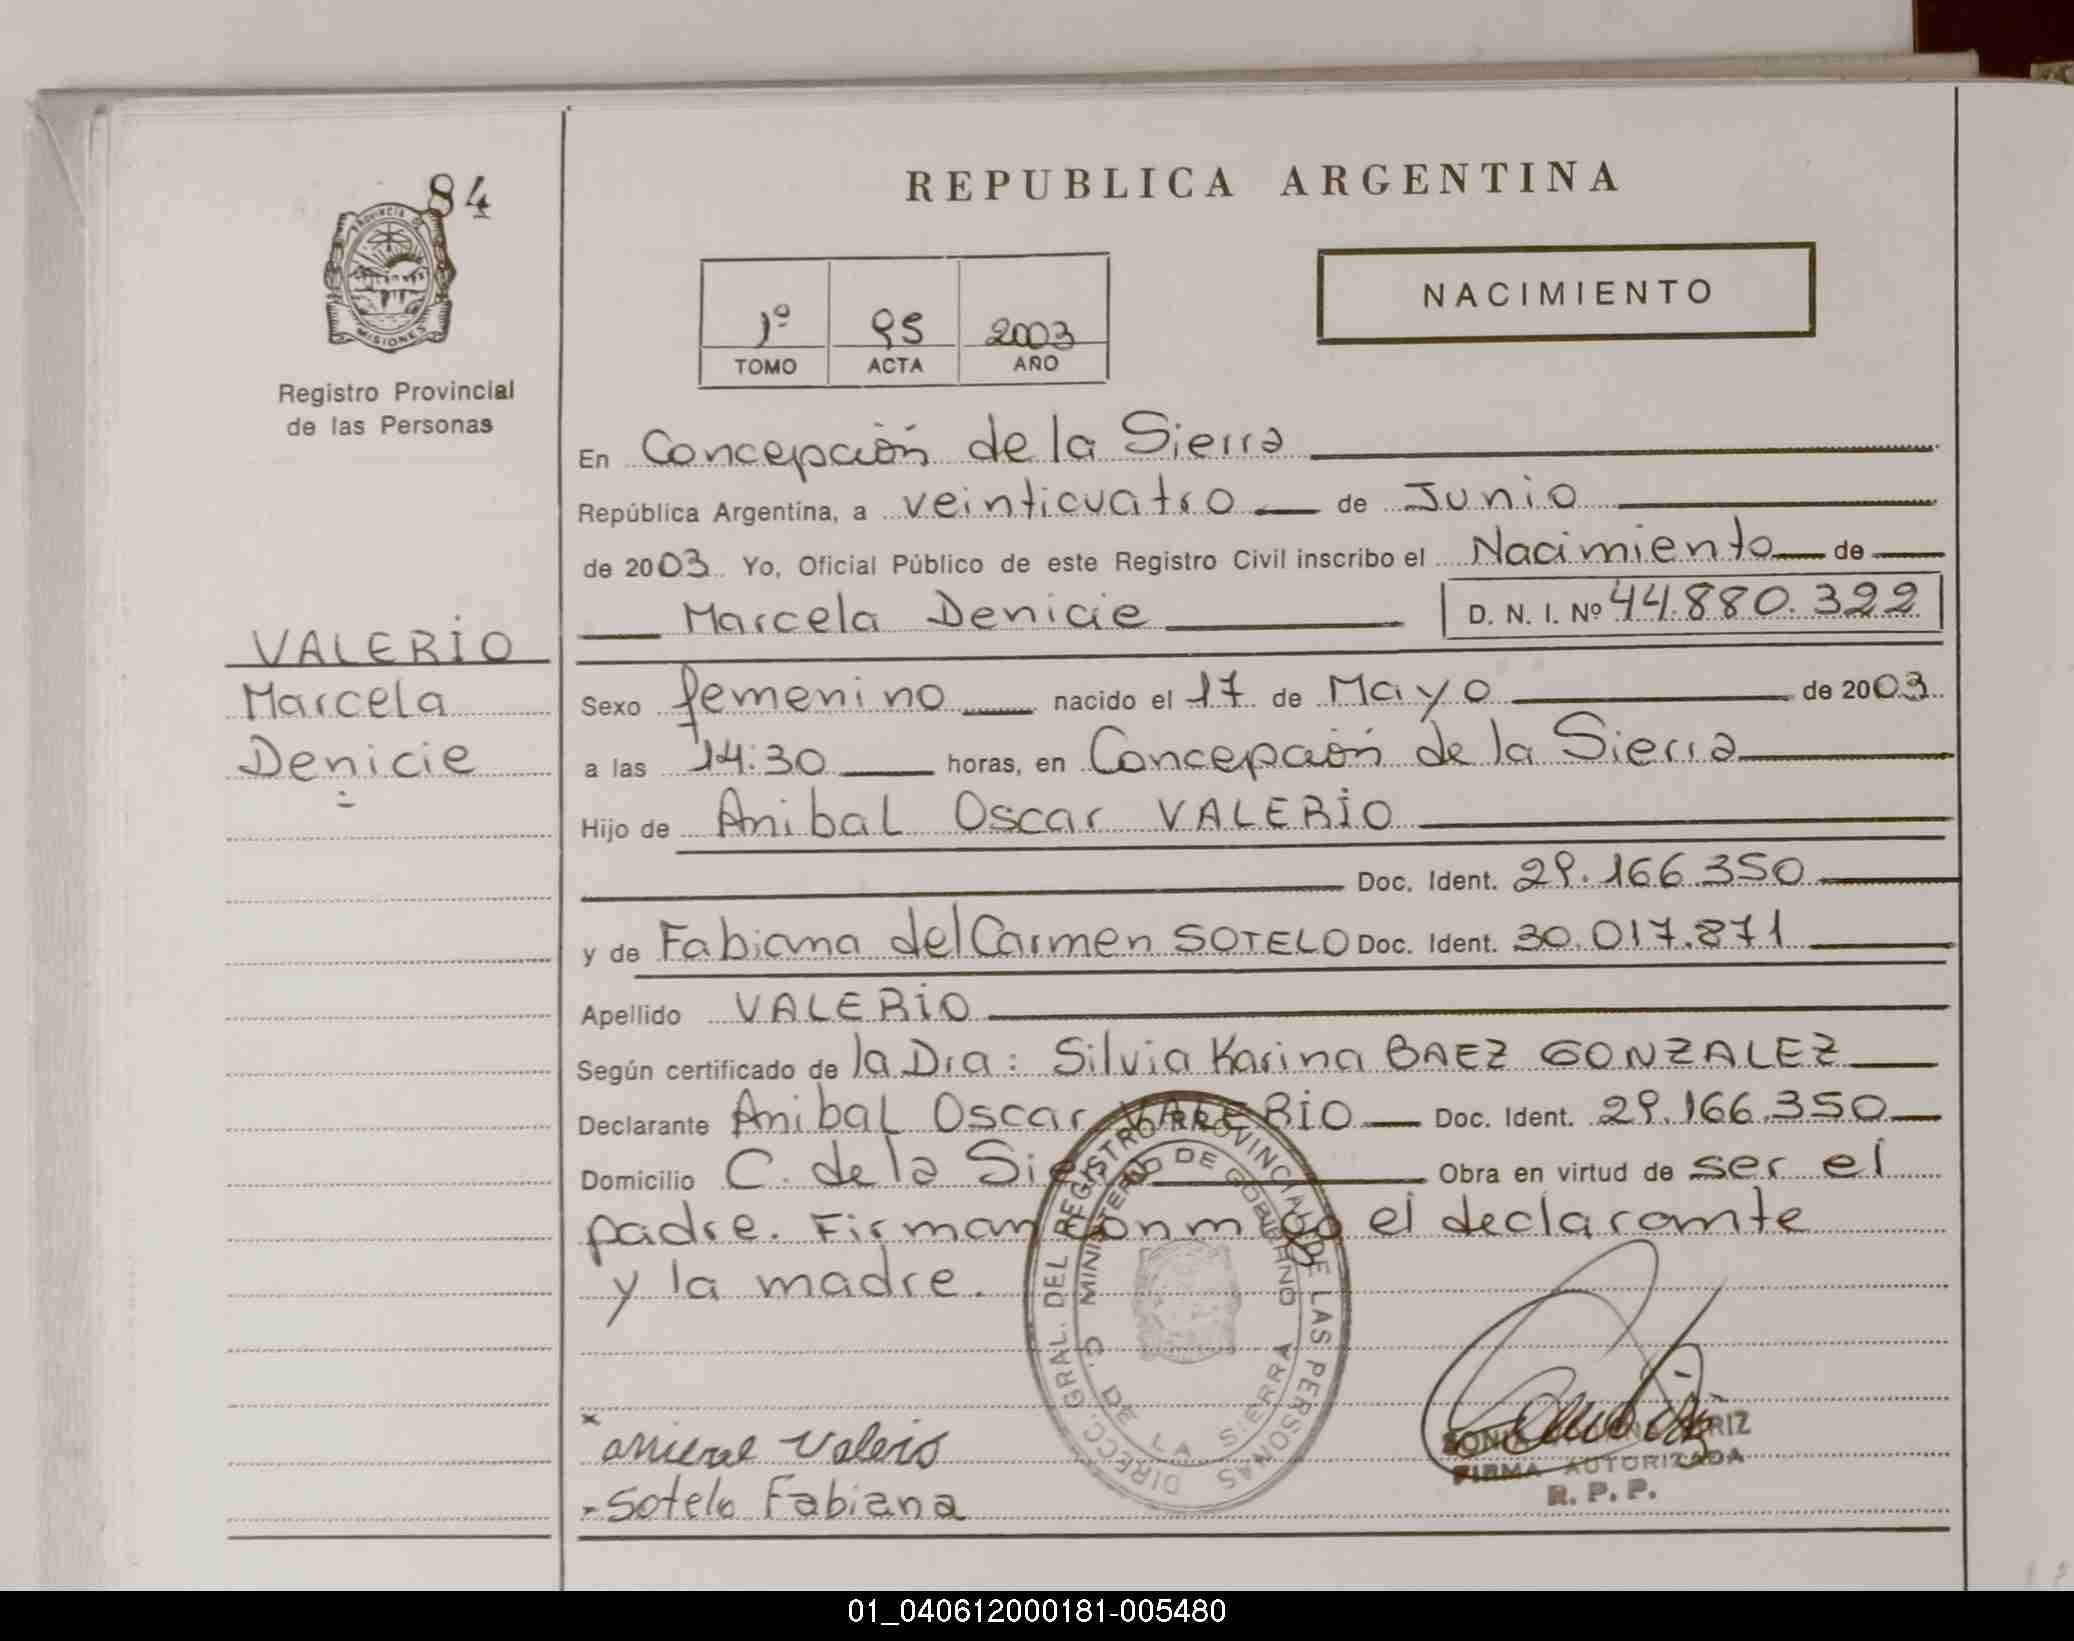 84
PROVINCIA DE
MISIONES
Registro Provincial
de las Personas
VALERIO
Marcela
Denicie
REPUBLICA ARGENTINA
NACIMIENTO
1º 95 2003
TOMO ACTA AÑO
En Concepción de la Sierra
República Argentina, a veinticuatro de Junio
de 2003 Yo, Oficial Público de este Registro Civil inscribo el Nacimiento de
Marcela Denicie D. N. I. Nº 44.880.322
Sexo femenino nacido el 17 de Mayo de 2003
a las 14:30 horas, en Concepción de la Sierra
Hijo de Anibal Oscar VALERIO
Doc. Ident. 29.166.350
y de Fabiana del Carmen SOTELO Doc. Ident. 30.017.871
Apellido VALERIO
Según certificado de la Dra: Silvia Karina BAEZ GONZALEZ
Declarante Anibal Oscar VALERIO Doc. Ident. 29.166.350
Domicilio C. de la Sierra Obra en virtud de ser el
padre. Firman conmigo el declarante
y la madre.
DIRECC. GRAL. DEL REGISTRO PROVINCIAL DE LAS PERSONAS
MINISTERIO DE GOBIERNO
C. DE LA SIERRA
Valerio
Sotelo Fabiana
SONIA
FIRMA AUTORIZADA
R. P. P.
01_040612000181-005480